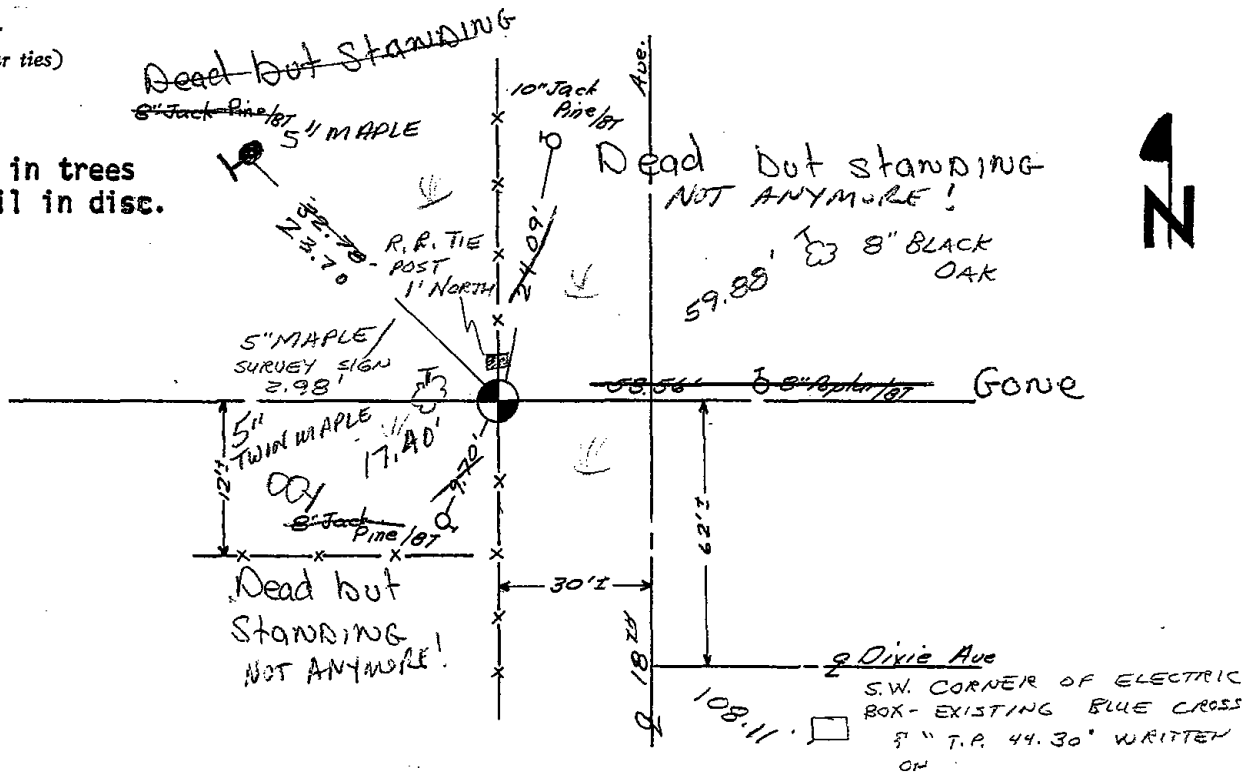 r ties)
Dead but Standing
8" Jack Pine/BT
5" MAPLE
in trees
il in disc.
10" Jack
Pine/BT
Ave.
Dead but standing
NOT ANYMORE!
N
32.78
23.70
R.R. TIE
POST
1' NORTH
24.09'
59.88'
8" BLACK
OAK
5" MAPLE/
SURVEY SIGN
2.98'
58.56'
8" Poplar/BT
Gone
5"
TWIN MAPLE
17.40'
12'±
9.70'
8" Jack
Pine/BT
62'±
30'±
Dead but
STANDING
NOT ANYMORE!
18TH
Dixie Ave
108.11
S.W. CORNER OF ELECTRIC
BOX - EXISTING BLUE CROSS
" T.P. 44.30' WRITTEN
ON